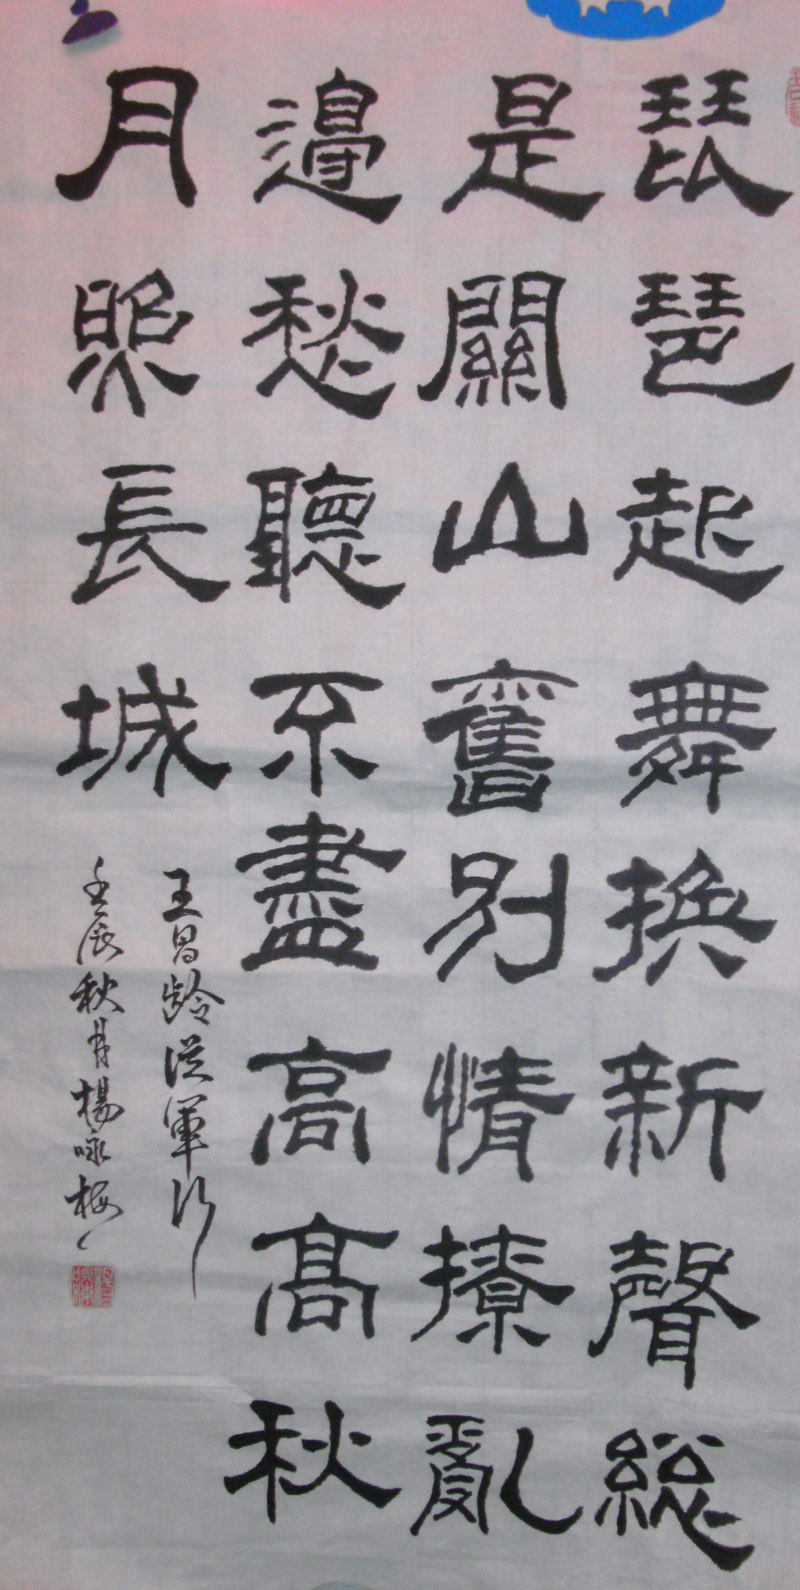 琵琶起舞換新聲総
是關山舊别情撩亂
邊愁聽不盡高髙秋
月照長城
王昌龄従軍行
壬辰秋月楊咏梅